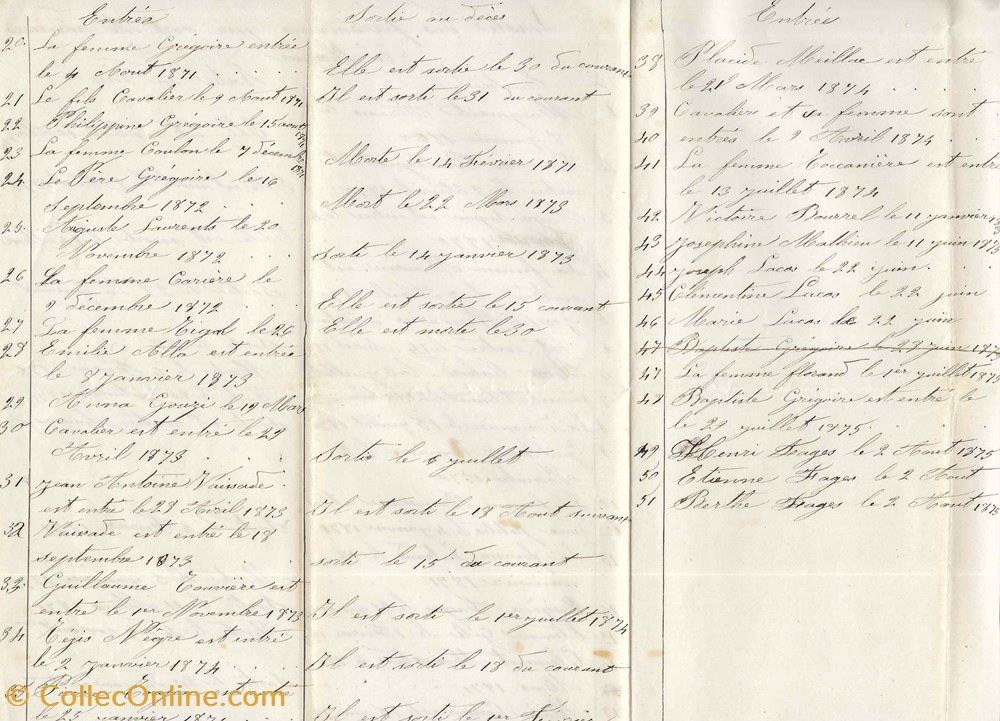 Entrées
20. La femme Grégoire entrée
le 4 Aout 1871 . . . . .
21 Le fils Cavalier le 9 Aout 1871
22 Philippine Grégoire le 15 aout
23 La femme Coulon le 7 décembre 1871
24. Le Père Grégoire le 16
septembre 1872 . . . .
25. Auguste Laurents le 20
Novembre 1872 . . . .
26 La femme Carière le
9 décembre 1872 . . . .
27 La femme le 26
28 Emilie Alla est entrée
le 8 janvier 1873
29 Anna Gouzi le 19 Mars
30 Cavalier est entré le 29
Avril 1873 . . . .
31 Jean Antoine Vaissade
est entré le 28 Avril 1873
32 Vaissade est entré le 18
septembre 1873 . . . .
33. Guillaume est
entré le 1er Novembre 1873
34 Régis Nègre est entré
le 2 janvier 1874 . . . .
est entré
le 25 janvier
Sortie ou décès
Elle est sortie le 30 du courant
Il est sorti le 31 du courant
Morte le 14 Février 1871
Mort le 22 Mars 1873
sortie le 14 janvier 1873
Elle est sortie le 15 courant
Elle est morte le 30
Sortie le 6 juillet
Il est sorti le 18 Aout suivant
sortie le 15 du courant
Il est sorti le 1er juillet 1874
Il est sorti le 18 du courant
Il est sorti le 1er
Entrée
38 Placide Meillac est entré
le 21 Mars 1874 . . . .
39 Cavalier et sa femme sont
40 entrés le 2 Avril 1874 .
41 La femme Toccanière est entrée
le 13 juillet 1874
42 Victoire Bourrel le 11 janvier
43 Josephine Mathieu le 11 juin 1875
44 Joseph Lacas le 22 juin . . .
45 Clémentine Lacas le 22 juin
46 Marie Lacas le 22 juin
47 Baptiste Grégoire le 28 juin 1875
47 La femme florand le 1er juillet 1875
48 Baptiste Grégoire est entré le
le 29 juillet 1875. . . .
49 Henri Fages le 2 Aout 1875
50 Etienne Fages le 2 Aout
51 Berthe Fages le 2 Aout 1875
© CollecOnline.com